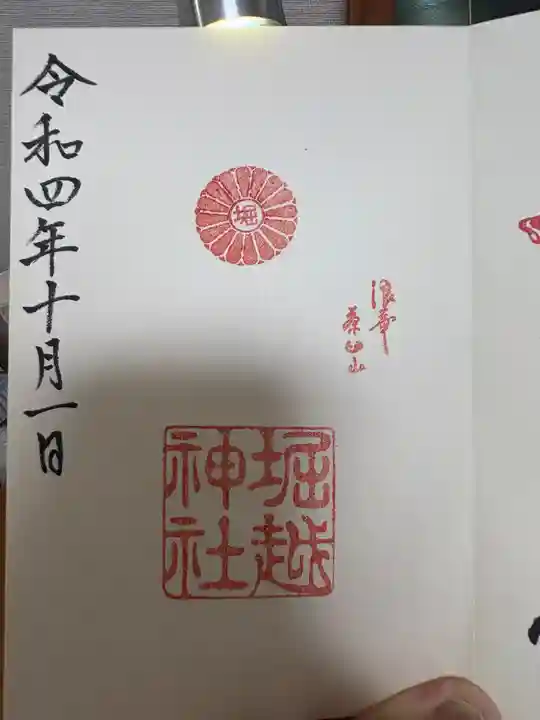 堀
浪華
茶臼山
堀越
神社
令和四年十月一日